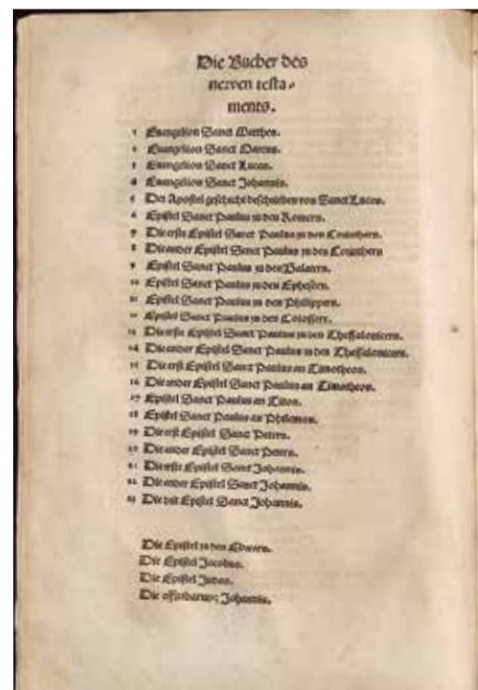 Die Bucher des
newen testa-
ments.
1 Euangelion Sanct Matthes.
2 Euangelion Sanct Marcus.
3 Euangelion Sanct Lucas.
4 Euangelion Sanct Johannis.
5 Der Apostel geschicht beschrieben von Sanct Lucas.
6 Epistel Sanct Paulus zu den Romern.
7 Die erste Epistel Sanct Paulus zu den Corinthern.
8 Die ander Epistel Sanct Paulus zu den Corinthern
9 Epistel Sanct Paulus zu den Galatern.
10 Epistel Sanct Paulus zu den Ephesern.
11 Epistel Sanct Paulus zu den Philippern.
12 Epistel Sanct Paulus zu den Colossern.
13 Die erste Epistel Sanct Paulus zu den Thessalonicern.
14 Die ander Epistel Sanct Paulus zu den Thessalonicern.
15 Die erst Epistel Sanct Paulus an Timotheon.
16 Die ander Epistel Sanct Paulus an Timotheon.
17 Epistel Sanct Paulus an Titon.
18 Epistel Sanct Paulus an Philemon.
19 Die erst Epistel Sanct Peters.
20 Die ander Epistel Sanct Peters.
21 Die erste Epistel Sanct Johannis.
22 Die ander Epistel Sanct Johannis.
23 Die drit Epistel Sanct Johannis.
Die Epistel zu den Ebreern.
Die Epistel Jacobus.
Die Epistel Judas.
Die offinbarung Johannis.